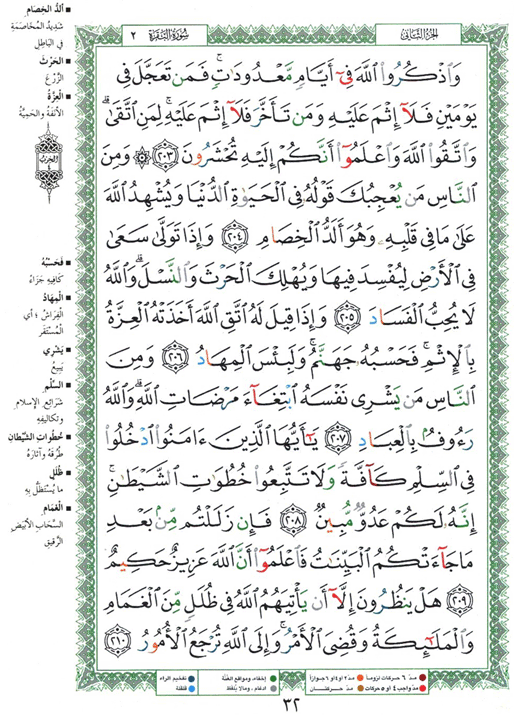 الجزء الثاني
سورة البقرة
٢
وَٱذْكُرُوا۟ ٱللَّهَ فِىٓ أَيَّامٍ مَّعْدُودَٰتٍ ۚ فَمَن تَعَجَّلَ فِى
يَوْمَيْنِ فَلَآ إِثْمَ عَلَيْهِ وَمَن تَأَخَّرَ فَلَآ إِثْمَ عَلَيْهِ ۚ لِمَنِ ٱتَّقَىٰ ۗ
وَٱتَّقُوا۟ ٱللَّهَ وَٱعْلَمُوٓا۟ أَنَّكُمْ إِلَيْهِ تُحْشَرُونَ ٢٠٣ ۞ وَمِنَ
ٱلنَّاسِ مَن يُعْجِبُكَ قَوْلُهُۥ فِى ٱلْحَيَوٰةِ ٱلدُّنْيَا وَيُشْهِدُ ٱللَّهَ
عَلَىٰ مَا فِى قَلْبِهِۦ وَهُوَ أَلَدُّ ٱلْخِصَامِ ٢٠٤ وَإِذَا تَوَلَّىٰ سَعَىٰ
فِى ٱلْأَرْضِ لِيُفْسِدَ فِيهَا وَيُهْلِكَ ٱلْحَرْثَ وَٱلنَّسْلَ ۗ وَٱللَّهُ
لَا يُحِبُّ ٱلْفَسَادَ ٢٠٥ وَإِذَا قِيلَ لَهُ ٱتَّقِ ٱللَّهَ أَخَذَتْهُ ٱلْعِزَّةُ
بِٱلْإِثْمِ ۚ فَحَسْبُهُۥ جَهَنَّمُ ۚ وَلَبِئْسَ ٱلْمِهَادُ ٢٠٦ وَمِنَ
ٱلنَّاسِ مَن يَشْرِى نَفْسَهُ ٱبْتِغَآءَ مَرْضَاتِ ٱللَّهِ ۗ وَٱللَّهُ
رَءُوفٌۢ بِٱلْعِبَادِ ٢٠٧ يَٰٓأَيُّهَا ٱلَّذِينَ ءَامَنُوا۟ ٱدْخُلُوا۟
فِى ٱلسِّلْمِ كَآفَّةً وَلَا تَتَّبِعُوا۟ خُطُوَٰتِ ٱلشَّيْطَٰنِ ۚ
إِنَّهُۥ لَكُمْ عَدُوٌّ مُّبِينٌ ٢٠٨ فَإِن زَلَلْتُم مِّنۢ بَعْدِ
مَا جَآءَتْكُمُ ٱلْبَيِّنَٰتُ فَٱعْلَمُوٓا۟ أَنَّ ٱللَّهَ عَزِيزٌ حَكِيمٌ
٢٠٩ هَلْ يَنظُرُونَ إِلَّآ أَن يَأْتِيَهُمُ ٱللَّهُ فِى ظُلَلٍ مِّنَ ٱلْغَمَامِ
وَٱلْمَلَٰٓئِكَةُ وَقُضِىَ ٱلْأَمْرُ ۚ وَإِلَى ٱللَّهِ تُرْجَعُ ٱلْأُمُورُ ٢١٠
■ أَلَدُّ الخِصَامِ
شَدِيدُ المُخَاصَمَةِ
فِي البَاطِلِ
■ الحَرْثَ
الزَّرْعَ
■ العِزَّةُ
الأَنَفَةُ والحَمِيَّةُ
الحزب
٤
■ فَحَسْبُهُ
كَافِيهِ جَزَاءً
■ المِهَادُ
الفِرَاشُ؛ أي
المُسْتَقَر
■ يَشْرِي
يَبِيعُ
■ السِّلْمِ
شَرَائِعِ الإسلام
وتكاليفِهِ
■ خُطُوَاتِ الشَّيْطَانِ
طُرُقَهُ وآثَارَهُ
■ ظُلَلٍ
ما يُسْتَظَلُّ بِهِ
■ الغَمَامِ
السَّحَابِ الأَبْيَضِ
الرَّقِيقِ
مدّ ٦ حركات لزوماً
مدّ ٢ أو ٤ أو ٦ جوازاً
إخفاء، ومواقع الغنّة
تفخيم الراء
مدّ واجب ٤ أو ٥ حركات
مدّ حركتان
إدغام، وما لا يُلفظ
قلقلة
٣٢